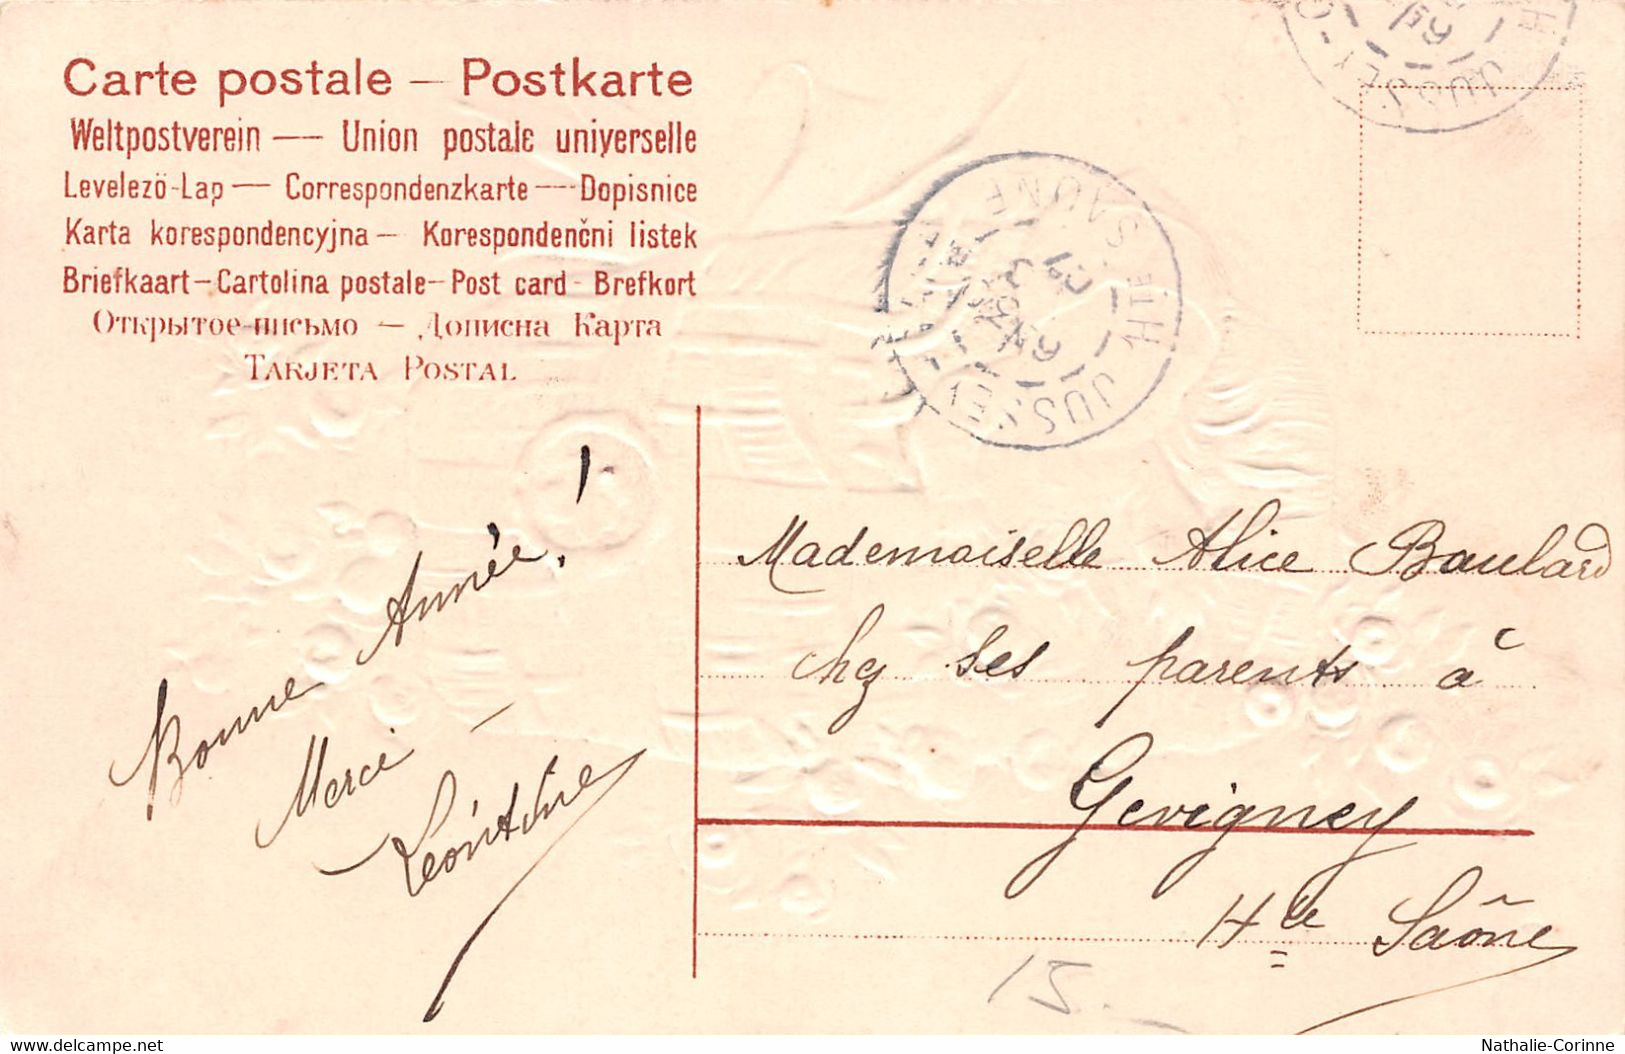 Carte postale — Postkarte
Weltpostverein — Union postale universelle
Levelezö-Lap — Correspondenzkarte — Dopisnice
Karta korespondencyjna — Korespondenčni listek
Briefkaart — Cartolina postale — Post card - Brefkort
Открытое письмо — Дописна Карта
TARJETA POSTAL
JUSSEY
HTE SAONE
JUSSEY
Bonne Année !
Merci —
Léontine
Mademoiselle Alice Boulard
chez ses parents à
Gevigney
Hte Saône
15.
delcampe.net
Nathalie-Corinne